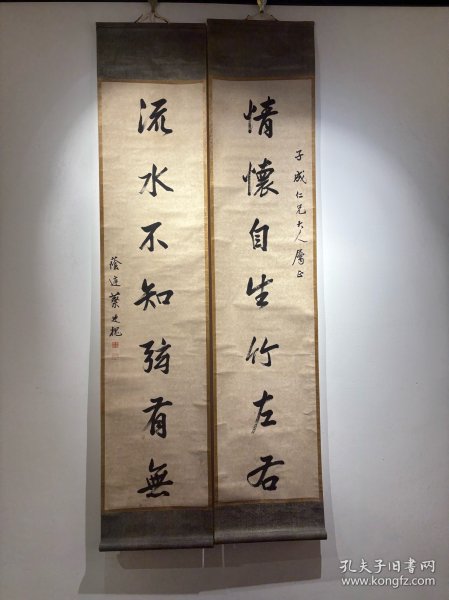 子成仁兄大人属正
情懷自生竹左右
流水不知弦有無
蔭廷葉
孔夫子旧书网
www.kongfz.com